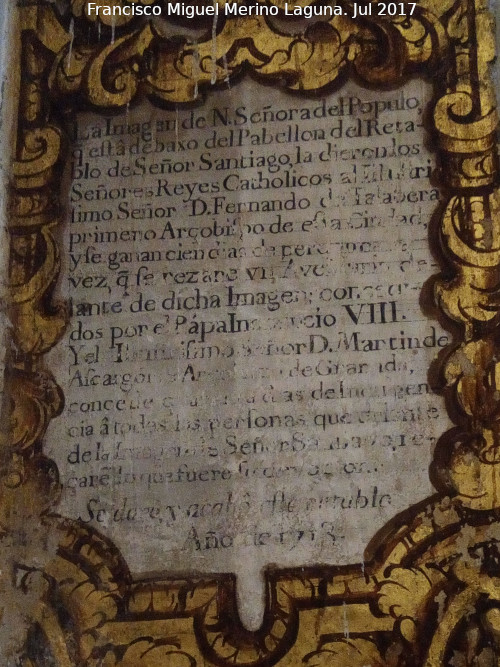 Francisco Miguel Merino Laguna. Jul 2017
La Imagen de N. Señora del Populo,
q̃ està debaxo del Pabellon del Reta-
blo de Señor Santiago, la dieron los
Señores Reyes Catholicos al
timo Señor D. Fernando de Talabera
primero Arçobispo de esta Ciudad,
y se ganan cien dias de
vez, q̃ se rezare de-
lante de dicha Imagen; conced-
dos por el Pápa Innocencio VIII.
Y el Señor D. Martin de
Ascargorta de Granada,
concede dias de Indulgen-
cia â todas las personas que delante
de la de Señor Santiago, re-
le que fuere su devocion.
Se doro, y acabò este retablo
Año de